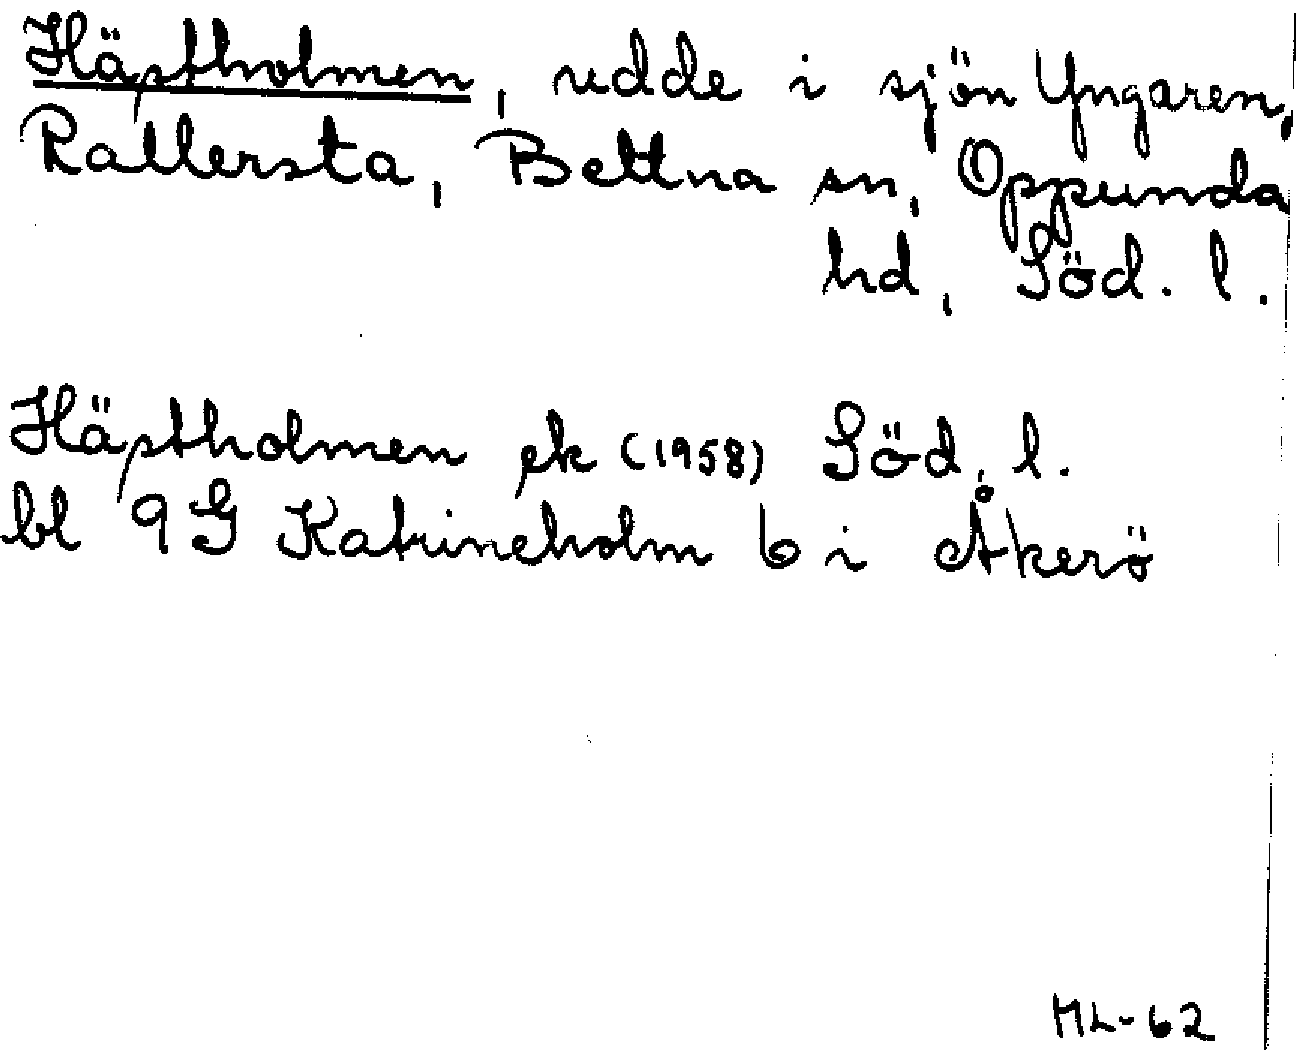 Häpstholmen, udde i sjön Yngaren,
Rallersta, Bettna sn, Oppunda
hd, Söd. l.
Häpstholmen ek (1958) Söd. l.
bl 9G Katrineholm 6 i Åkerö
ML-62